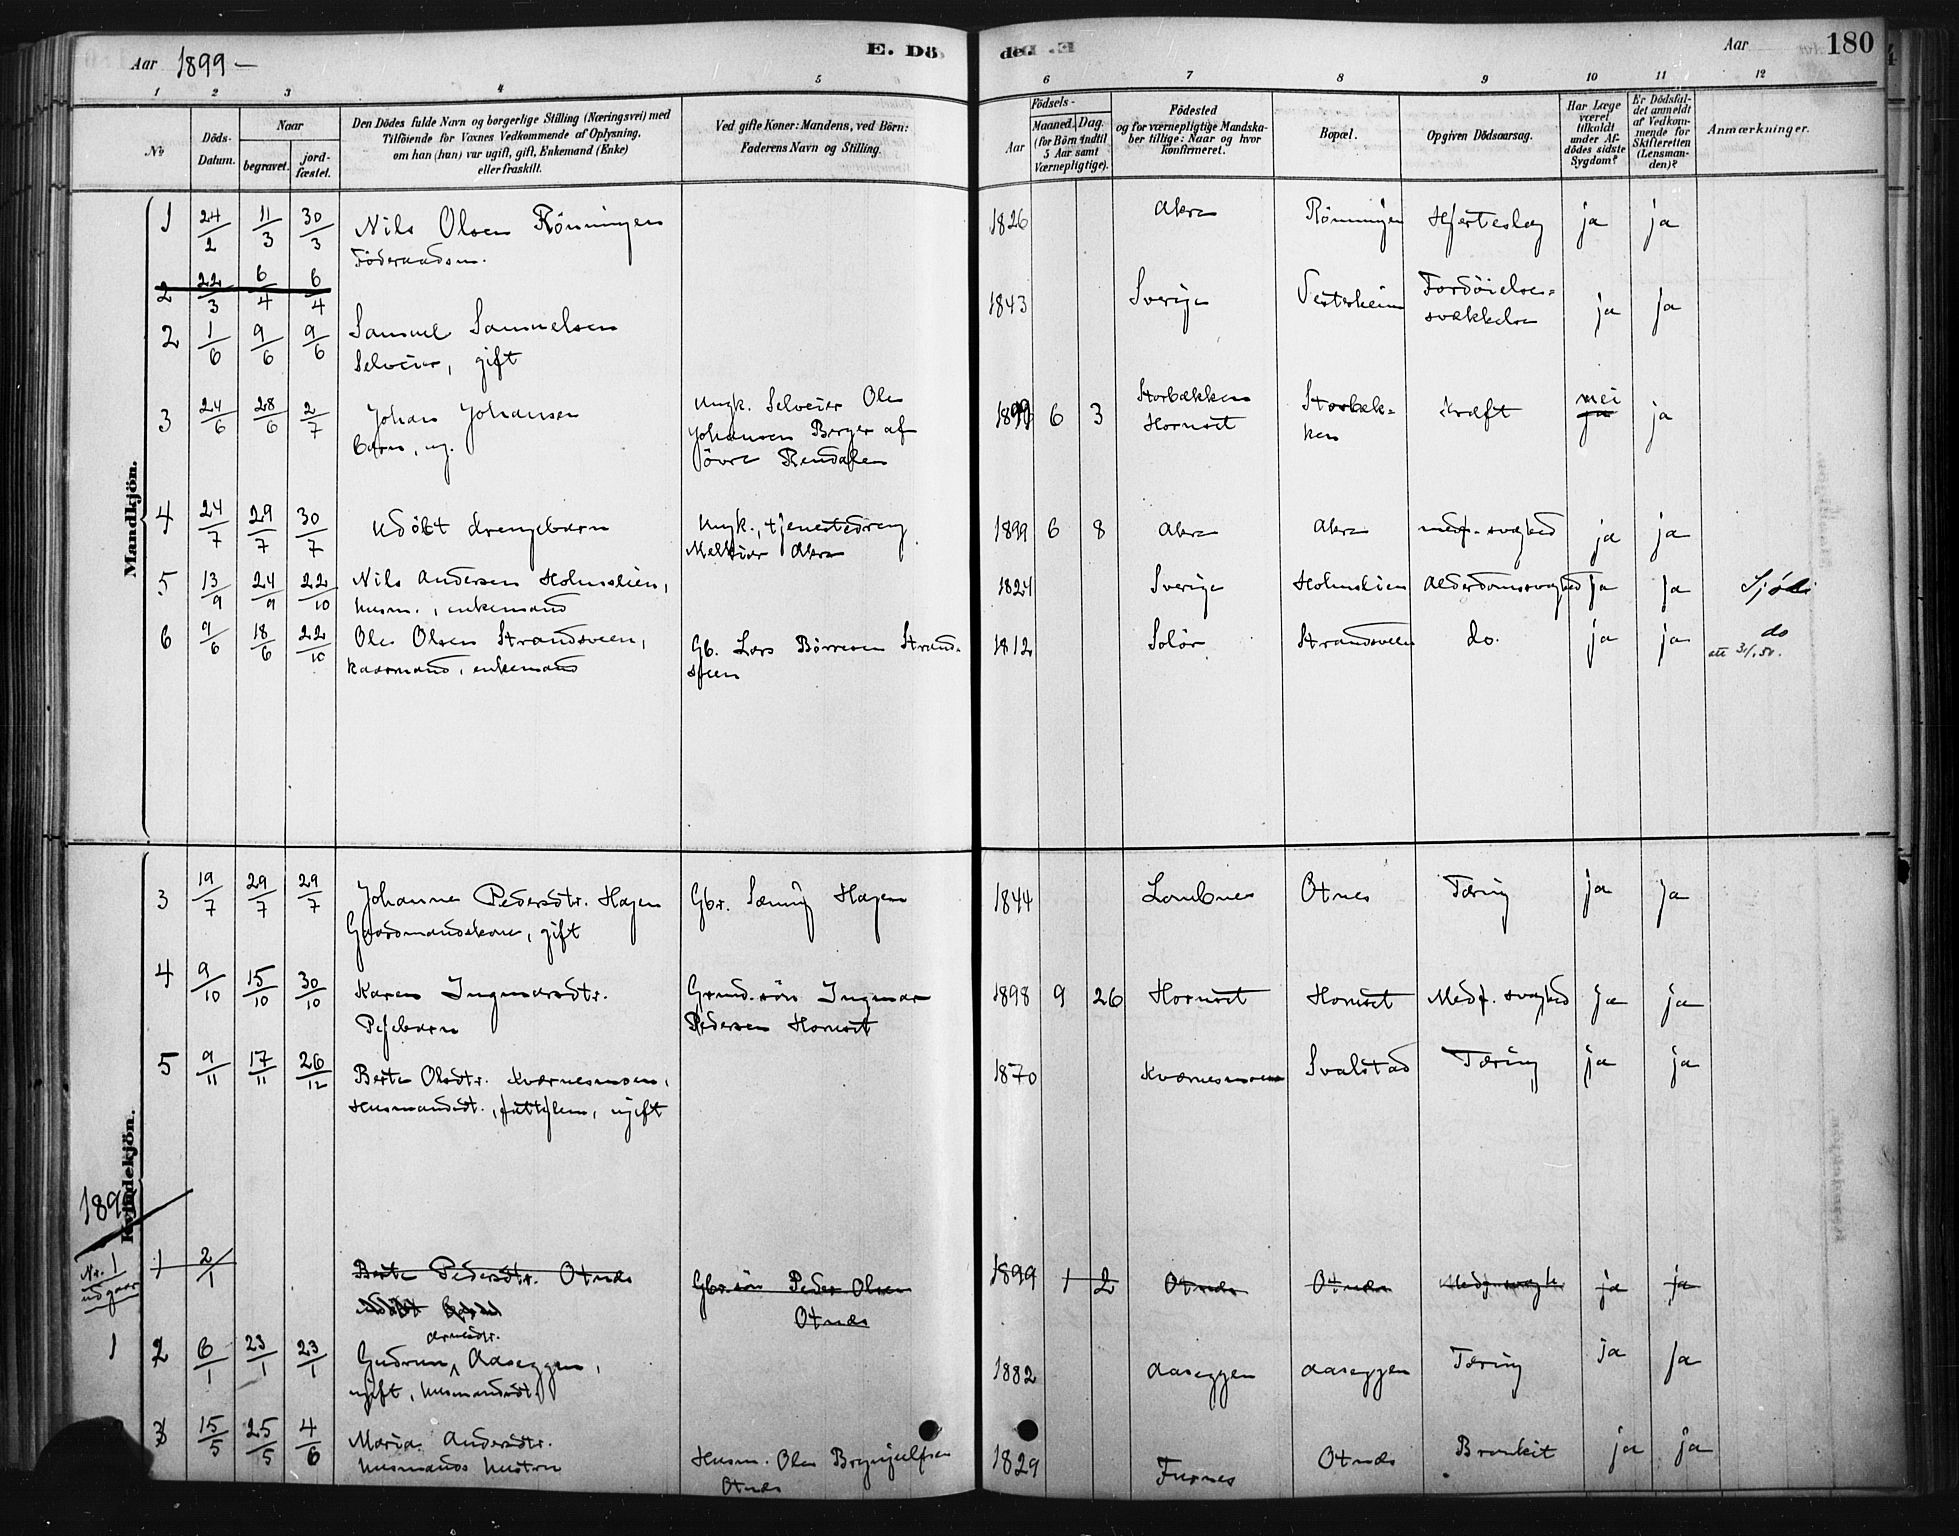 Aar 1899 –
E. Dö
de. E.
Aar
180
1 2 3 4 5 6 7 8 9 10 11 12
No
Döds-Datum.
Naar
begravet.
jord-fæstet.
Den Dödes fulde Navn og borgerlige Stilling (Næringsvei) med
Tilföiende for Voxnes Vedkommende af Oplysning,
om han (hun) var ugift, gift, Enkemand (Enke)
eller fraskilt.
Ved gifte Koner: Mandens, ved Börn:
Faderens Navn og Stilling.
Födsels-
Aar
Maaned. Dag.
(for Börn indtil
5 Aar samt
Værnepligtige).
Födested
og for værnepligtige Mandska-
ber tillige: Naar og hvor
konfirmeret.
Bopæl.
Opgiven Dödsaarsag.
Har Læge
været
tilkaldt
under Af-
dödes sidste
Sygdom?
Er Dödsfal-
det anmeldt
af Vedkom-
mende for
Skifteretten
(Lensman-
den)?
Anmærkninger.
Mandkjön.
1 24/2 11/3 30/3 Nils Olsen Rönningen 1826 Akre Rönningen Hjerteslag ja ja
Föderaadsm.
2 22/3 6/4 6/4
2 1/6 9/6 9/6 Samuel Samuelsen 1843 Sverige Vesterheim Fordöielses= ja ja
svækkelse
Selveier, gift
3 24/6 28/6 2/7 Johan Johansen Ungk. Selveier Ole 1899 6 3 Storbækken Storbæk= Kræft nei ja ja
barn, ug. Johansen Berger af Hornset ken
övre Rendalen
4 24/7 29/7 30/7 Udöbt drengebarn Ungk., tjenestedreng 1899 6 8 Akre Akre medf. svaghed ja ja
Melkior Akre
5 13/9 24/9 22/10 Nils Andersen Holmslien, 1824 Sverige Holmslien Alderdomssvaghed ja ja Sjöli
husm., enkemand
6 9/6 18/6 22/10 Ole Olsen Strandsveen, Gb. Lars Börresen Strand- 1812 Solör Strandsveen do. ja ja do
kaarmand, enkemand sveen
Kvindekjön.
3 19/7 29/7 29/7 Johanne Pedersdtr. Hagen Gbr. Sæming Hagen 1844 Lombnes Otnes Tæring ja ja
Gaardmandskone, gift
4 9/10 15/10 30/10 Karen Ingmarsdtr. Grmd.sön Ingmar 1898 9 26 Hornset Hornset Medf. svaghed ja ja
Pigebarn Pedersen Hornset
5 9/11 17/11 26/12 Berte Olsdtr. Kværnesmoen, 1870 Kværnesmoen Svalstad Tæring ja ja
Husmandsdt., fattiglem, ugift
1899
Nr. 1
udgaar
1 2/1 Berte Pedersdtr. Otnes Gbr.sön Peder Olsen 1899 1 2 Otnes Otnes Medf. svagh. ja ja
Otnes
1 2 6/1 23/1 23/1 Gudrun Arnesdtr. Aaseggen, 1882 Aaseggen Aaseggen Tæring ja ja
ugift, husmandsdt.
3 15/5 25/5 4/6 Maria Andersdtr. Husm. Ole Brynjulfsen 1829 Furnes Otnes Bronkit ja ja
husmands hustru Otnes